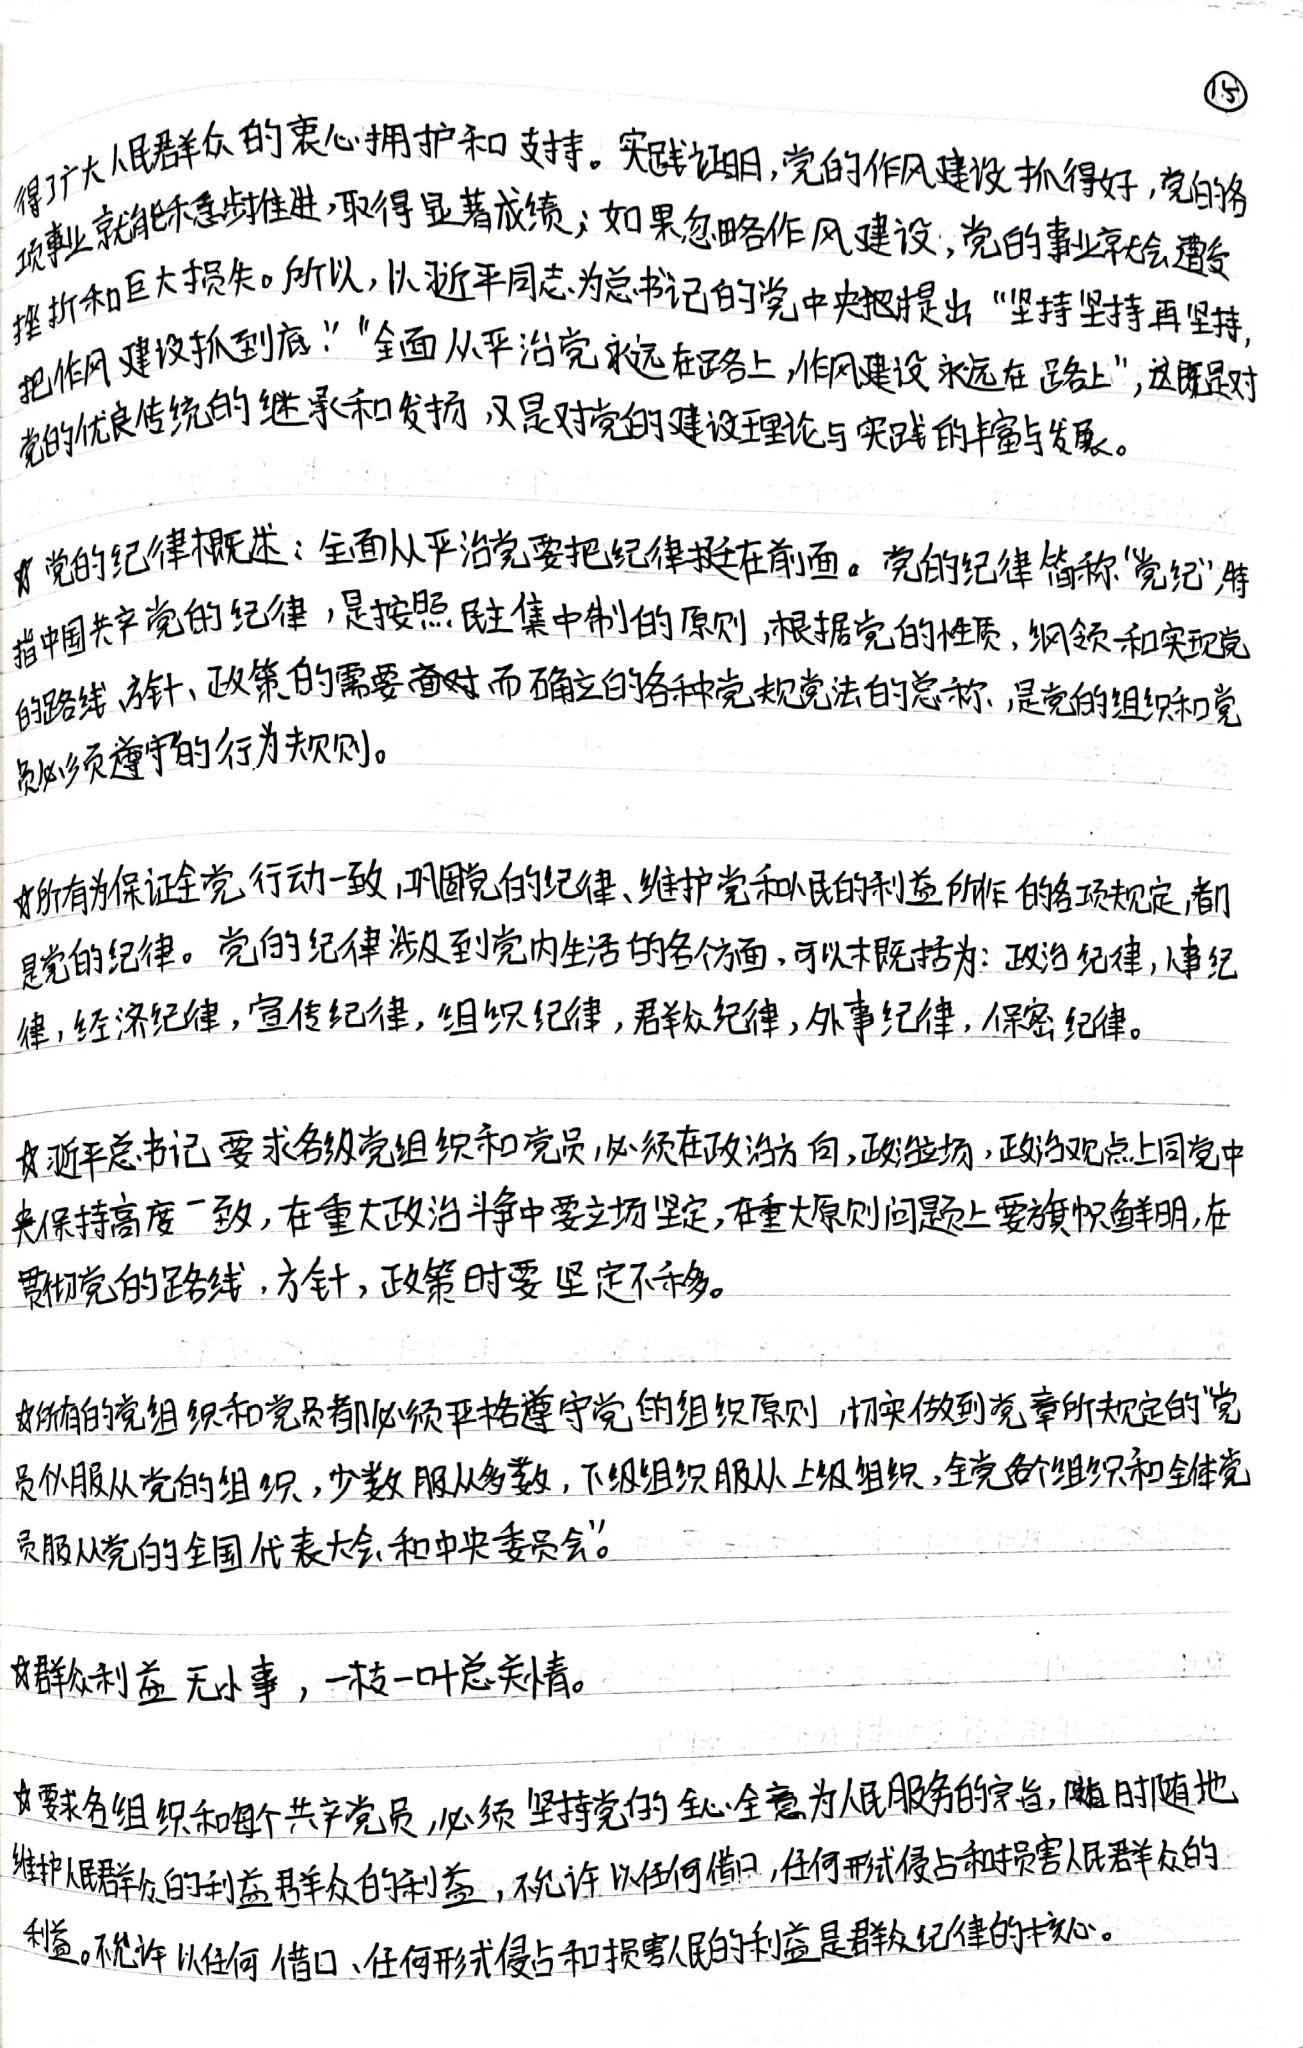 15
得了广大人民群众的衷心拥护和支持。实践证明，党的作风建设抓得好，党的各
项事业就能稳步推进，取得显著成绩；如果忽略作风建设，党的事业就会遭受
挫折和巨大损失。所以，以习近平同志为总书记的党中央把提出“坚持坚持再坚持，
把作风建设抓到底”“全面从严治党永远在路上，作风建设永远在路上”，这既是对
党的优良传统的继承和发扬，又是对党的建设理论与实践的丰富与发展。
☆党的纪律概述：全面从严治党要把纪律挺在前面。党的纪律简称“党纪”，特
指中国共产党的纪律，是按照民主集中制的原则，根据党的性质，纲领和实现党
的路线、方针、政策的需要而确立的各种党规党法的总称，是党的组织和党
员必须遵守的行为规则。
☆所有为保证全党行动一致，巩固党的纪律、维护党和人民的利益所作的各项规定，都
是党的纪律。党的纪律涉及到党内生活的各个方面，可以概括为：政治纪律，人事纪
律，经济纪律，宣传纪律，组织纪律，群众纪律，外事纪律，保密纪律。
☆习近平总书记要求各级党组织和党员，必须在政治方向，政治立场，政治观点上同党中
央保持高度一致，在重大政治斗争中要立场坚定，在重大原则问题上要旗帜鲜明，在
贯彻党的路线，方针，政策时要坚定不移。
☆所有的党组织和党员都必须严格遵守党的组织原则，切实做到党章所规定的“党
员个人服从党的组织，少数服从多数，下级组织服从上级组织，全党各个组织和全体党
员服从党的全国代表大会和中央委员会”。
☆群众利益无小事，一枝一叶总关情。
☆要求各组织和每个共产党员，必须坚持党的全心全意为人民服务的宗旨，随时随地
维护人民群众的利益群众的利益，不允许以任何借口，任何形式侵占和损害人民群众的
利益。不允许以任何借口、任何形式侵占和损害人民的利益是群众纪律的核心。